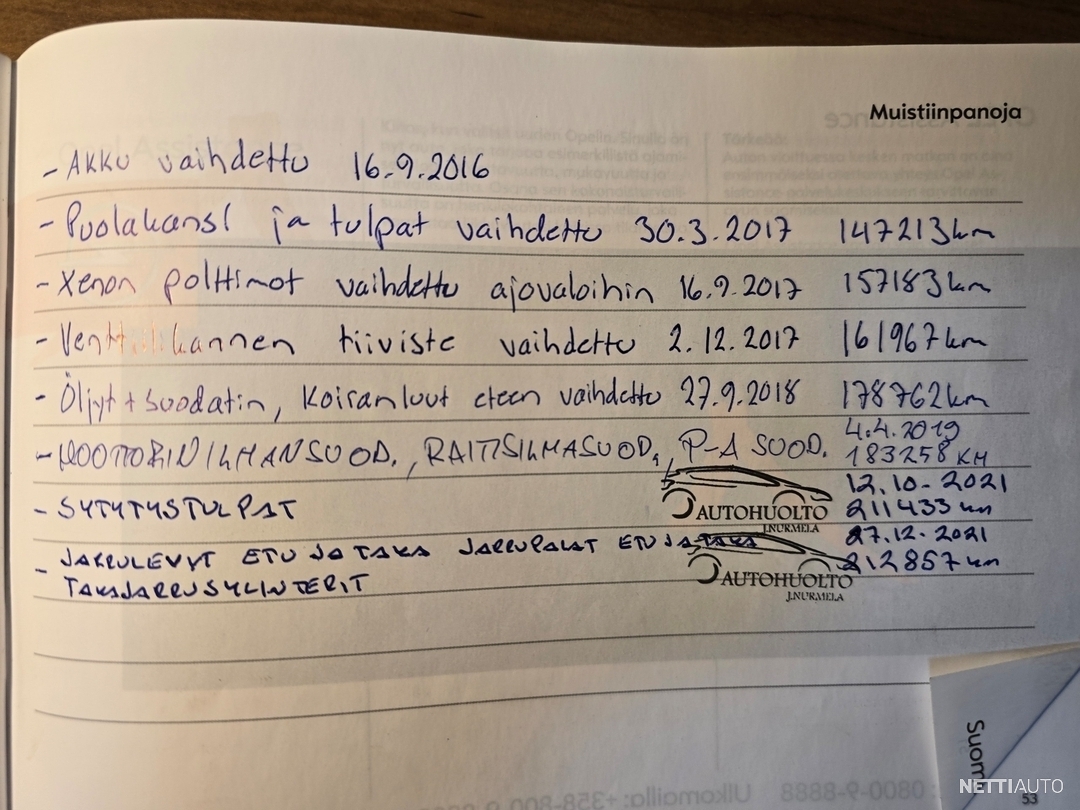 Muistiinpanoja
- Akku vaihdettu 16.9.2016
- Puolakansi ja tulpat vaihdettu 30.3.2017 147213km
- Xenon polttimot vaihdettu ajovaloihin 16.9.2017 157183km
- Venttiilikannen tiiviste vaihdettu 2.12.2017 161967km
- Öljyt + suodatin, Koiranluut eteen vaihdettu 27.9.2018 178762km
- MOOTTORIN ILMANSUOD., RAITISILMASUOD, P-A SUOD. 4.4.2019 183258 KM
- SYTYTYSTULPAT 12.10-2021 211433 km
AUTOHUOLTO
J.NURMELA
- JARRULEVYT ETU JA TAKA JARRUPALAT ETU JA TAKA 27.12-2021
TAKAJARRUSYLINTERIT 212857 km
AUTOHUOLTO
J.NURMELA
Suom
53
NETTIAUTO